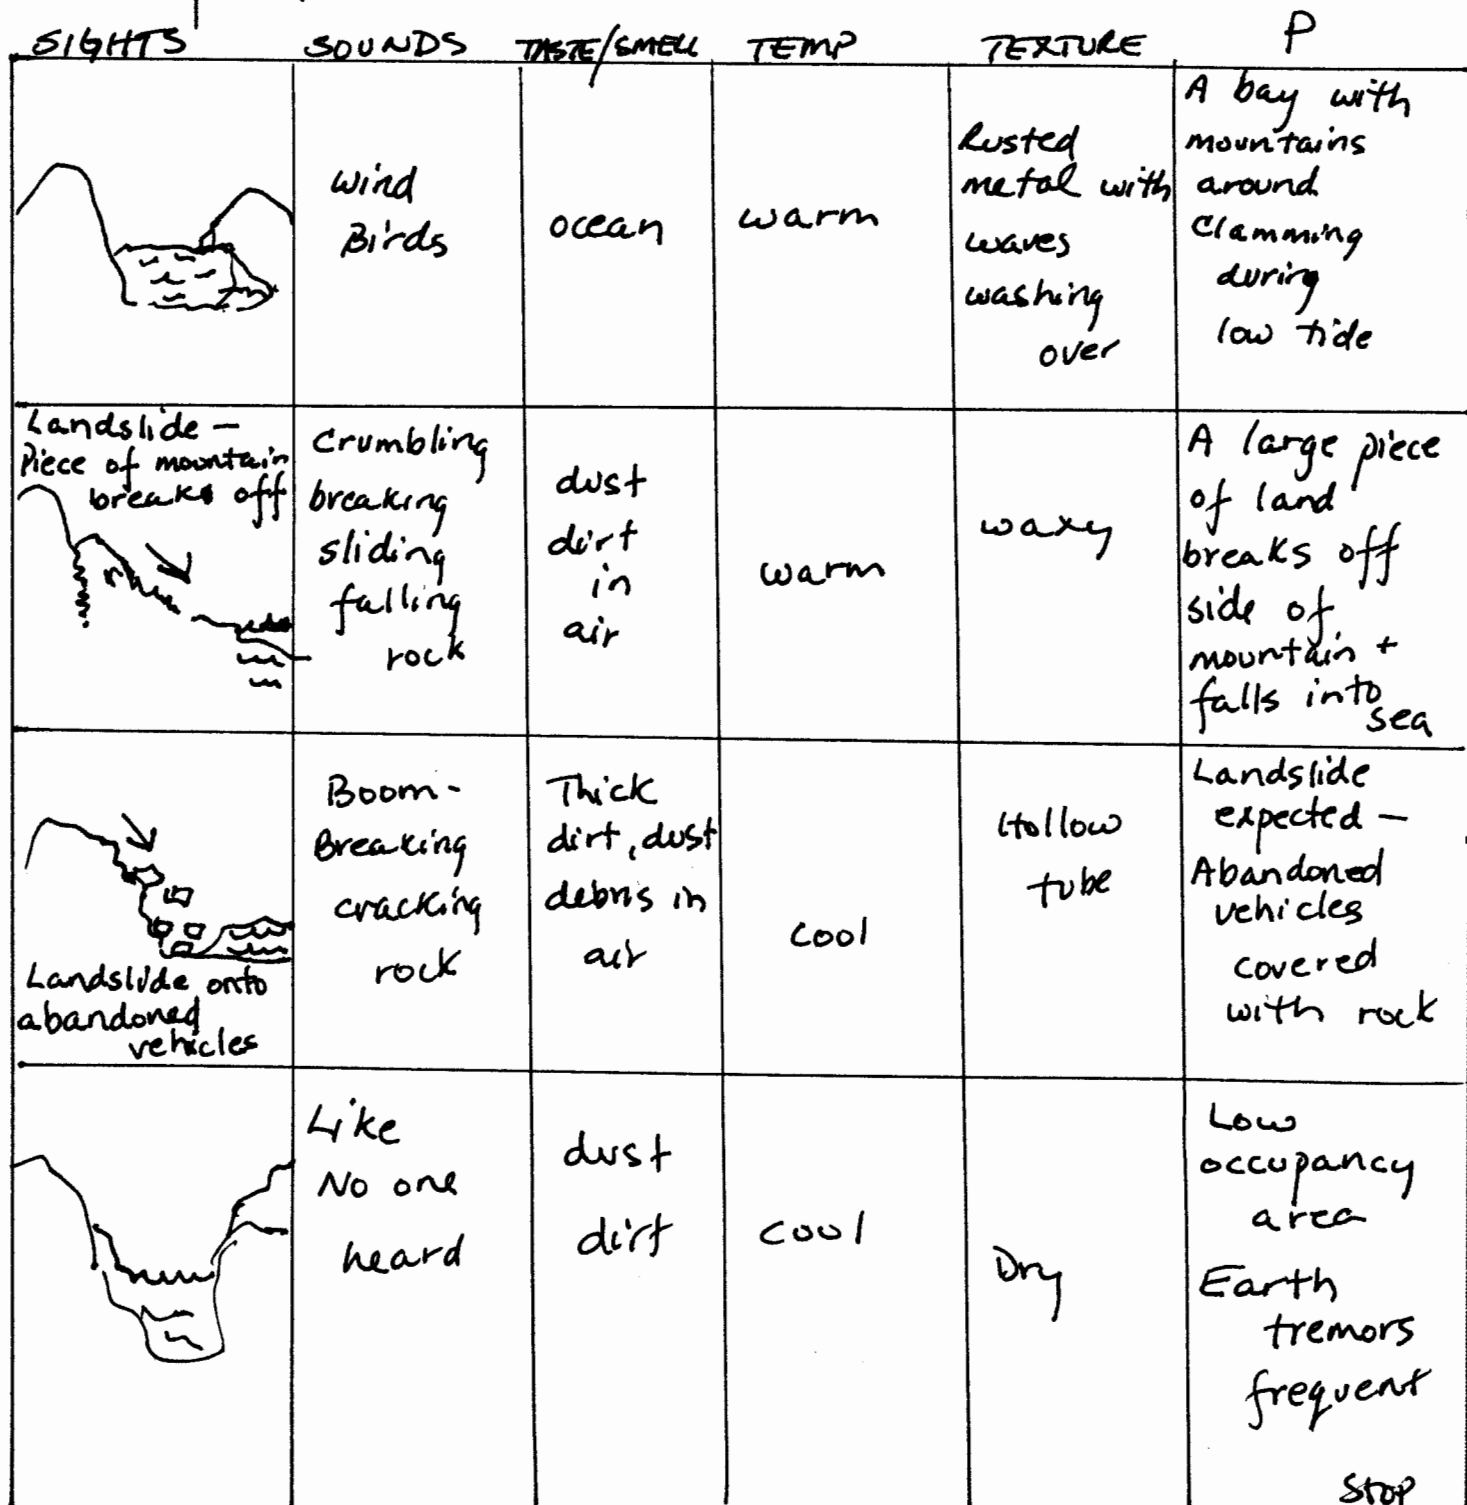 SIGHTS SOUNDS TASTE/SMELL TEMP TEXTURE P
wind
Birds
ocean
warm
Rusted
metal with
waves
washing
over
A bay with
mountains
around
Clamming
during
low tide
Landslide -
Piece of mountain
breaks off
Crumbling
breaking
sliding
falling
rock
dust
dirt
in
air
warm
waxy
A large piece
of land
breaks off
side of
mountain +
falls into
sea
Landslide onto
abandoned
vehicles
Boom-
Breaking
cracking
rock
Thick
dirt, dust
debris in
air
cool
Hollow
tube
Landslide
expected -
Abandoned
vehicles
covered
with rock
Like
No one
heard
dust
dirt
cool
Dry
Low
occupancy
area
Earth
tremors
frequent
STOP